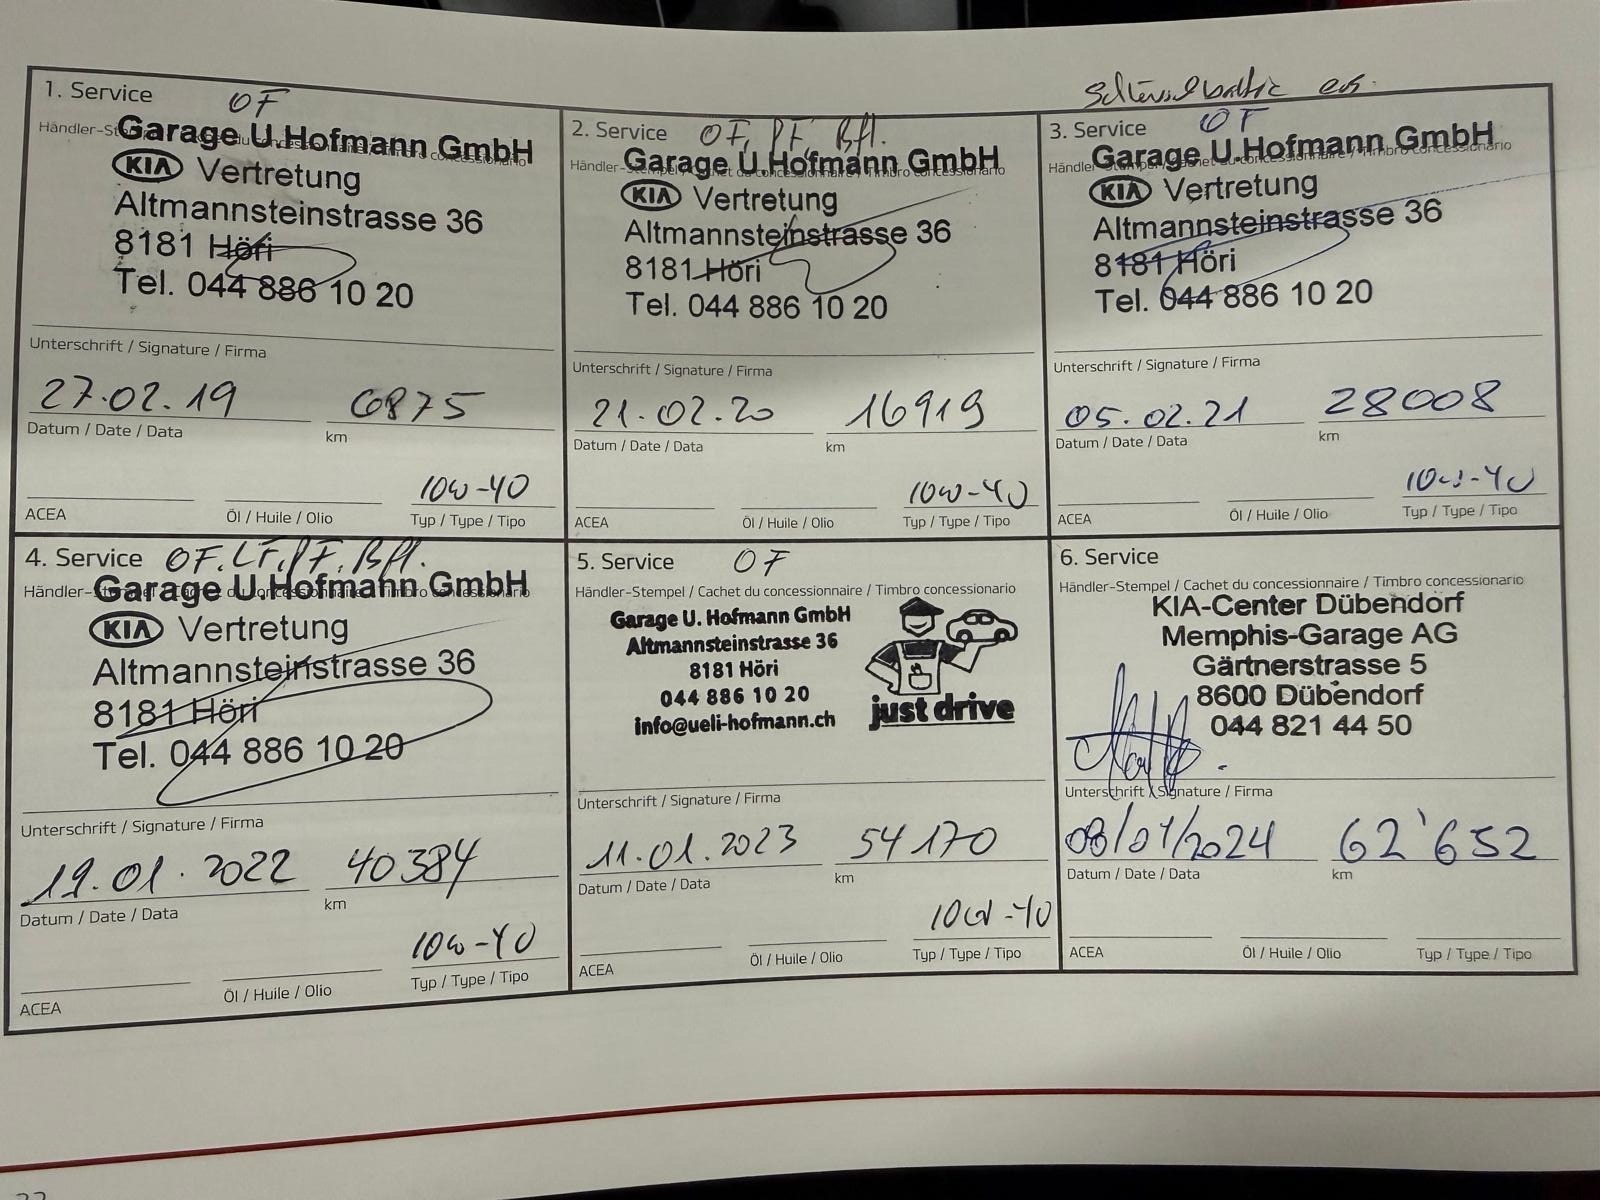 1. Service OF
Händler-
Garage U.Hofmann GmbH
KIA Vertretung
Altmannsteinstrasse 36
8181 Höri
Tel. 044 886 10 20
Unterschrift / Signature / Firma
27.02.19 6875
Datum / Date / Data km
10w-40
ACEA Öl / Huile / Olio Typ / Type / Tipo
2. Service OF, PF, Bfl.
Händler-Stempel / Cachet du concessionnaire / Timbro concessionario
Garage U.Hofmann GmbH
KIA Vertretung
Altmannsteinstrasse 36
8181 Höri
Tel. 044 886 10 20
Unterschrift / Signature / Firma
21.02.20 16919
Datum / Date / Data km
10w-40
ACEA Öl / Huile / Olio Typ / Type / Tipo
3. Service OF
Händler-Stempel / Cachet du concessionnaire / Timbro concessionario
Garage U.Hofmann GmbH
KIA Vertretung
Altmannsteinstrasse 36
8181 Höri
Tel. 044 886 10 20
Unterschrift / Signature / Firma
05.02.21 28008
Datum / Date / Data km
10w-40
ACEA Öl / Huile / Olio Typ / Type / Tipo
4. Service OF, LF, PF, Bfl.
Händler-
Garage U.Hofmann GmbH
KIA Vertretung
Altmannsteinstrasse 36
8181 Höri
Tel. 044 886 10 20
Unterschrift / Signature / Firma
19.01.2022 40384
Datum / Date / Data km
10w-40
ACEA Öl / Huile / Olio Typ / Type / Tipo
5. Service OF
Händler-Stempel / Cachet du concessionnaire / Timbro concessionario
Garage U. Hofmann GmbH
Altmannsteinstrasse 36
8181 Höri
044 886 10 20
info@ueli-hofmann.ch
just drive
Unterschrift / Signature / Firma
11.01.2023 54170
Datum / Date / Data km
10w-40
ACEA Öl / Huile / Olio Typ / Type / Tipo
6. Service
Händler-Stempel / Cachet du concessionnaire / Timbro concessionario
KIA-Center Dübendorf
Memphis-Garage AG
Gärtnerstrasse 5
8600 Dübendorf
044 821 44 50
Unterschrift / Signature / Firma
08/01/2024 62'652
Datum / Date / Data km
ACEA Öl / Huile / Olio Typ / Type / Tipo